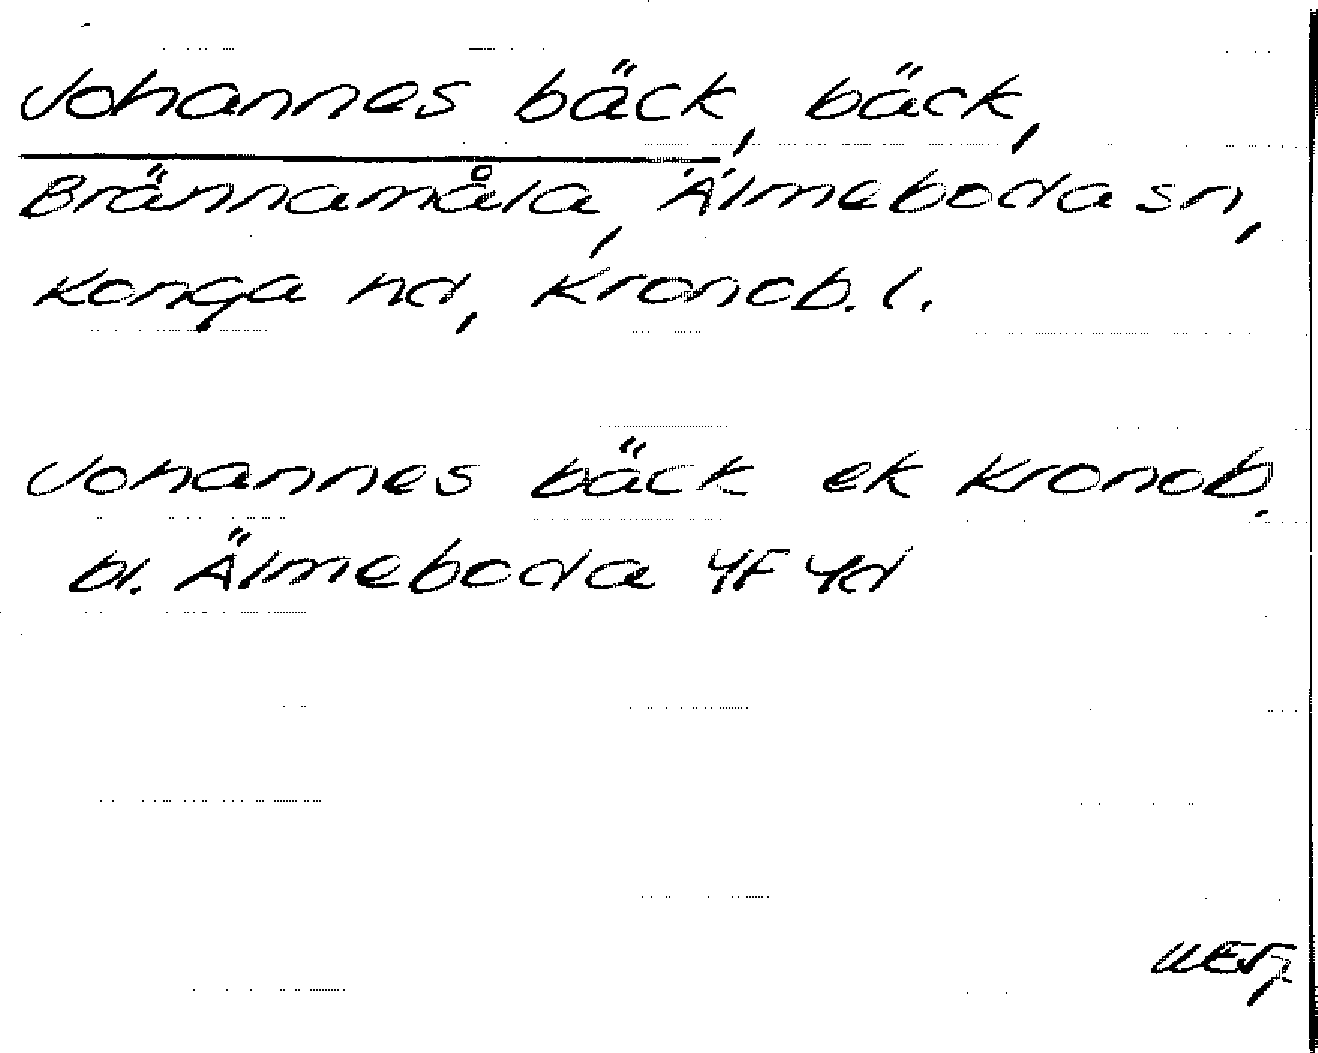 Johannes bäck, bäck,
Brännamåla, Älmeboda sn,
Konga hd, Kronob. l.
Johannes bäck ek Kronob.
bl. Älmeboda 4F 4d